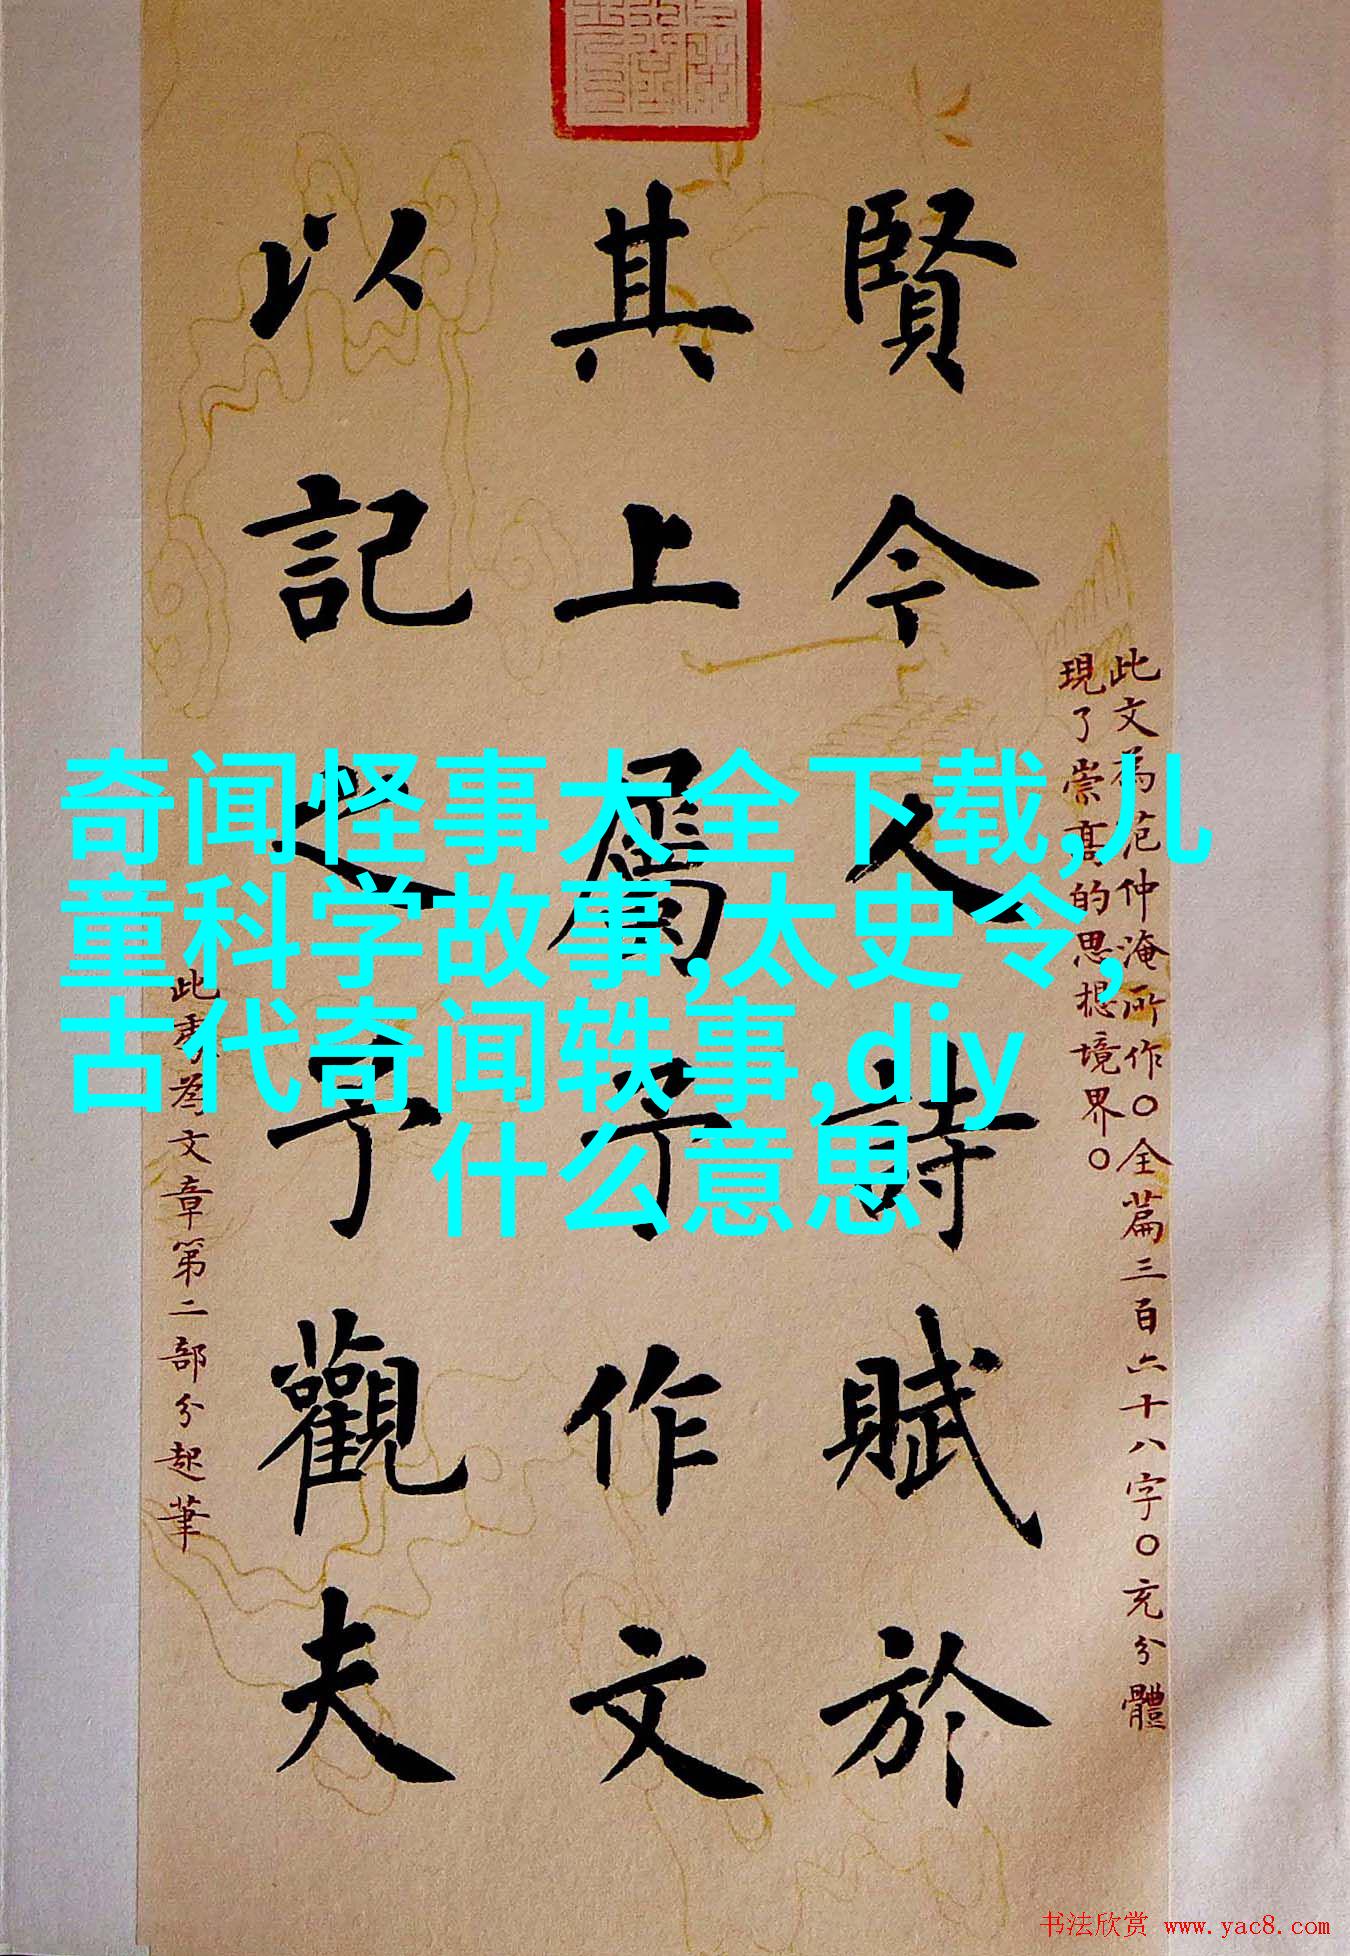 賢今人詩賦於
其上屬予作文
以記之予觀夫
此文為范仲淹所作〇全篇三百六十八字〇充分體
現了崇高的思想境界〇
此為文章第二部分起筆
奇闻怪事大全下载,儿
童科学故事,太史令,
古代奇闻轶事,diy
什么意思
书法欣赏 www.yac8.com